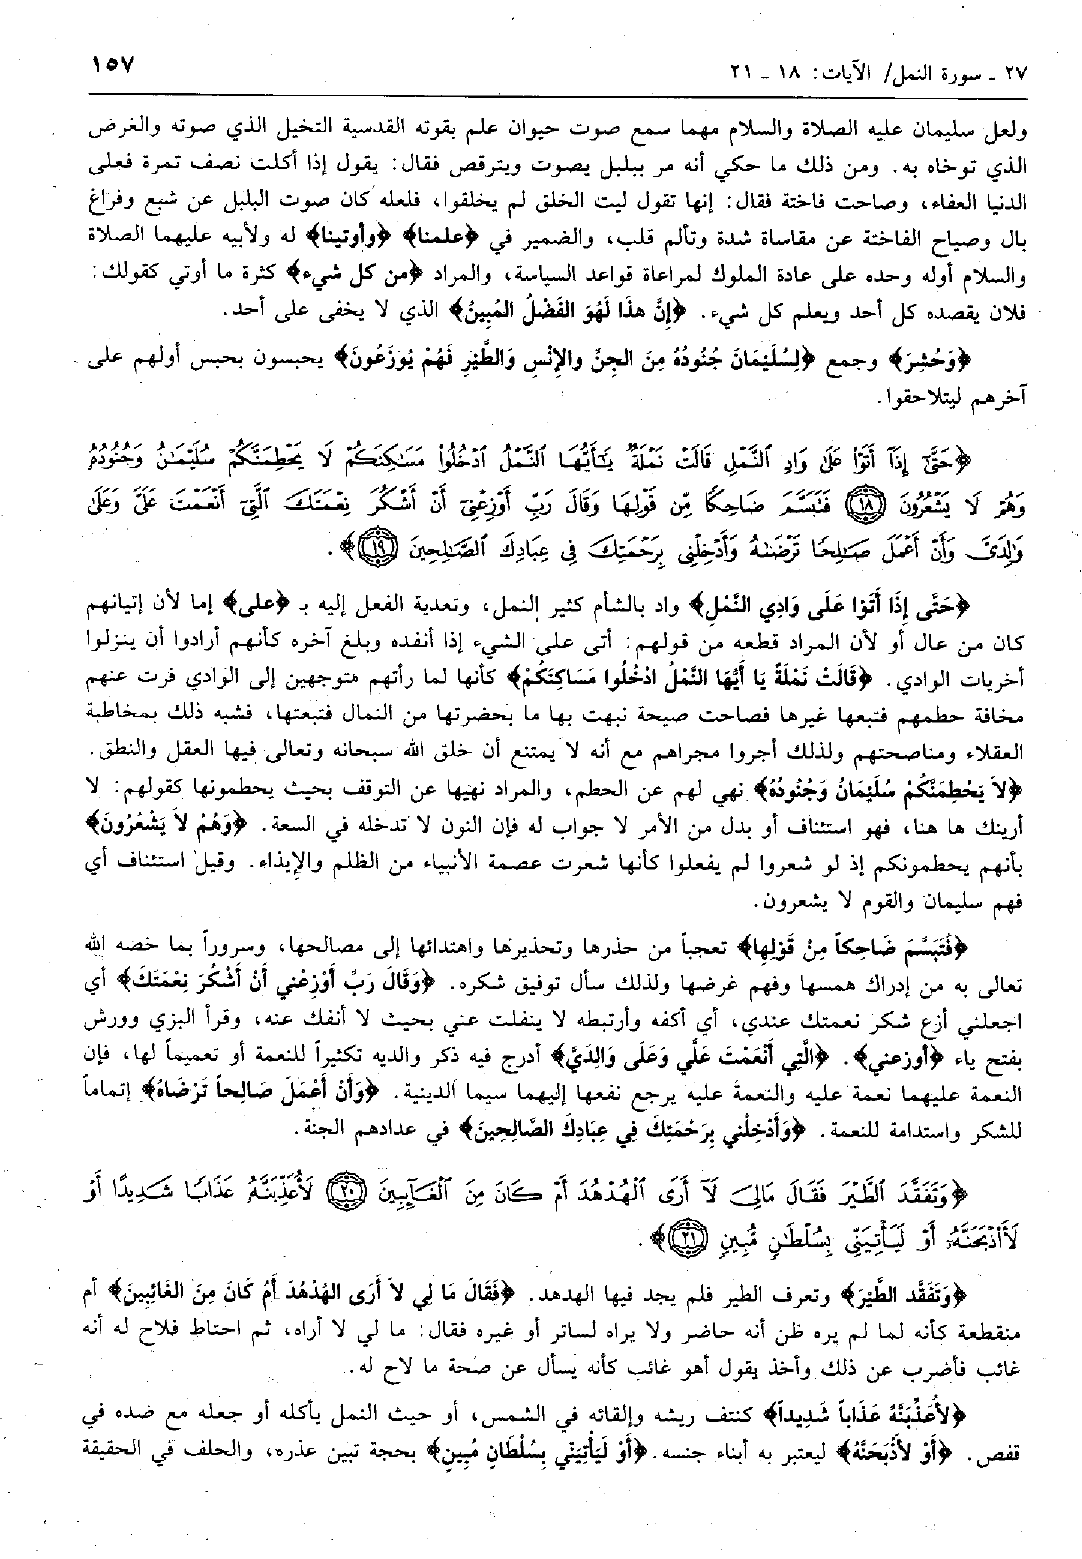 ٢٧ ـ سورة النمل/ الآيات: ١٨ ـ ٢١
١٥٧
ولعل سليمان عليه الصلاة والسلام مهما سمع صوت حيوان علم بقوته القدسية التخيل الذي صوته والغرض
الذي توخاه به. ومن ذلك ما حكي أنه مر ببلبل يصوت ويترقص فقال: يقول إذا أكلت نصف تمرة فعلى
الدنيا العفاء، وصاحت فاختة فقال: إنها تقول ليت الخلق لم يخلقوا، فلعله كان صوت البلبل عن شبع وفراغ
بال وصياح الفاختة عن مقاساة شدة وتألم قلب، والضمير في ﴿علمنا﴾ ﴿وأوتينا﴾ له ولأبيه عليهما الصلاة
والسلام أوله وحده على عادة الملوك لمراعاة قواعد السياسة، والمراد ﴿من كل شيء﴾ كثرة ما أوتي كقولك:
فلان يقصده كل أحد ويعلم كل شيء. ﴿إِنَّ هذَا لَهُوَ الفَضْلُ المُبِينُ﴾ الذي لا يخفى على أحد.
﴿وَحُشِرَ﴾ وجمع ﴿لِسُلَيْمَانَ جُنُودُهُ مِنَ الجِنِّ والإِنْسِ وَالطَّيْرِ فَهُمْ يُوزَعُونَ﴾ يحبسون بحبس أولهم على
آخرهم ليتلاحقوا.
﴿حَتَّىٰٓ إِذَآ أَتَوْا۟ عَلَىٰ وَادِ ٱلنَّمْلِ قَالَتْ نَمْلَةٌ يَـٰٓأَيُّهَا ٱلنَّمْلُ ٱدْخُلُوا۟ مَسَـٰكِنَكُمْ لَا يَحْطِمَنَّكُمْ سُلَيْمَـٰنُ وَجُنُودُهُۥ
وَهُمْ لَا يَشْعُرُونَ ﴿١٨﴾ فَتَبَسَّمَ ضَاحِكًا مِّن قَوْلِهَا وَقَالَ رَبِّ أَوْزِعْنِىٓ أَنْ أَشْكُرَ نِعْمَتَكَ ٱلَّتِىٓ أَنْعَمْتَ عَلَىَّ وَعَلَىٰ
وَٰلِدَىَّ وَأَنْ أَعْمَلَ صَـٰلِحًا تَرْضَىٰهُ وَأَدْخِلْنِى بِرَحْمَتِكَ فِى عِبَادِكَ ٱلصَّـٰلِحِينَ ﴿١٩﴾﴾.
﴿حَتَّى إِذَا أَتَوْا عَلَى وَادِي النَّمْلِ﴾ واد بالشأم كثير النمل، وتعدية الفعل إليه بـ ﴿على﴾ إما لأن إتيانهم
كان من عال أو لأن المراد قطعه من قولهم: أتى على الشيء إذا أنفده وبلغ آخره كأنهم أرادوا أن ينزلوا
أخريات الوادي. ﴿قَالَتْ نَمْلَةٌ يَا أَيُّهَا النَّمْلُ ادْخُلُوا مَسَاكِنَكُمْ﴾ كأنها لما رأتهم متوجهين إلى الوادي فرت عنهم
مخافة حطمهم فتبعها غيرها فصاحت صيحة نبهت بها ما بحضرتها من النمال فتبعتها، فشبه ذلك بمخاطبة
العقلاء ومناصحتهم ولذلك أجروا مجراهم مع أنه لا يمتنع أن خلق الله سبحانه وتعالى فيها العقل والنطق.
﴿لاَ يَحْطِمَنَّكُمْ سُلَيْمَانُ وَجُنُودُهُ﴾ نهي لهم عن الحطم، والمراد نهيها عن التوقف بحيث يحطمونها كقولهم: لا
أرينك ها هنا، فهو استئناف أو بدل من الأمر لا جواب له فإن النون لا تدخله في السعة. ﴿وَهُمْ لاَ يَشْعُرُونَ﴾
بأنهم يحطمونكم إذ لو شعروا لم يفعلوا كأنها شعرت عصمة الأنبياء من الظلم والإيذاء. وقيل استئناف أي
فهم سليمان والقوم لا يشعرون.
﴿فَتَبَسَّمَ ضَاحِكاً مِنْ قَوْلِها﴾ تعجباً من حذرها وتحذيرها واهتدائها إلى مصالحها، وسروراً بما خصه الله
تعالى به من إدراك همسها وفهم غرضها ولذلك سأل توفيق شكره. ﴿وَقَالَ رَبِّ أَوْزِعْني أَنْ أَشْكُرَ نِعْمَتَكَ﴾ أي
اجعلني أزع شكر نعمتك عندي، أي أكفه وأرتبطه لا ينفلت عني بحيث لا أنفك عنه، وقرأ البزي وورش
بفتح ياء ﴿أوزعني﴾. ﴿الَّتِي أَنْعَمْتَ عَلَّي وَعَلَى وَالِدَيَّ﴾ أدرج فيه ذكر والديه تكثيراً للنعمة أو تعميماً لها، فإن
النعمة عليهما نعمة عليه والنعمة عليه يرجع نفعها إليهما سيما الدينية. ﴿وَأَنْ أَعْمَلَ صَالِحاً تَرْضَاهُ﴾ إتماماً
للشكر واستدامة للنعمة. ﴿وَأَدْخِلْني بِرَحْمَتِكَ فِي عِبَادِكَ الصَّالِحِينَ﴾ في عدادهم الجنة.
﴿وَتَفَقَّدَ ٱلطَّيْرَ فَقَالَ مَالِىَ لَآ أَرَى ٱلْهُدْهُدَ أَمْ كَانَ مِنَ ٱلْغَآئِبِينَ ﴿٢٠﴾ لَأُعَذِّبَنَّهُۥ عَذَابًا شَدِيدًا أَوْ
لَأَا۟ذْبَحَنَّهُۥٓ أَوْ لَيَأْتِيَنِّى بِسُلْطَـٰنٍ مُّبِينٍ ﴿٢١﴾﴾.
﴿وَتَفَقَّد الطَّيْرَ﴾ وتعرف الطير فلم يجد فيها الهدهد. ﴿فَقَالَ مَا لِي لاَ أَرَى الهُدْهُدَ أَمْ كَانَ مِنَ الغَائِبِينَ﴾ أم
منقطعة كأنه لما لم يره ظن أنه حاضر ولا يراه لساتر أو غيره فقال: ما لي لا أراه، ثم احتاط فلاح له أنه
غائب فأضرب عن ذلك وأخذ يقول أهو غائب كأنه يسأل عن صحة ما لاح له.
﴿لأُعَذِّبَنَّهُ عَذَاباً شَدِيداً﴾ كنتف ريشه وإلقائه في الشمس، أو حيث النمل يأكله أو جعله مع ضده في
قفص. ﴿أَوْ لأَذْبَحَنَّهُ﴾ ليعتبر به أبناء جنسه. ﴿أَوْ لَيَأْتِيَنِّي بِسُلْطَانٍ مُبِينٍ﴾ بحجة تبين عذره، والحلف في الحقيقة